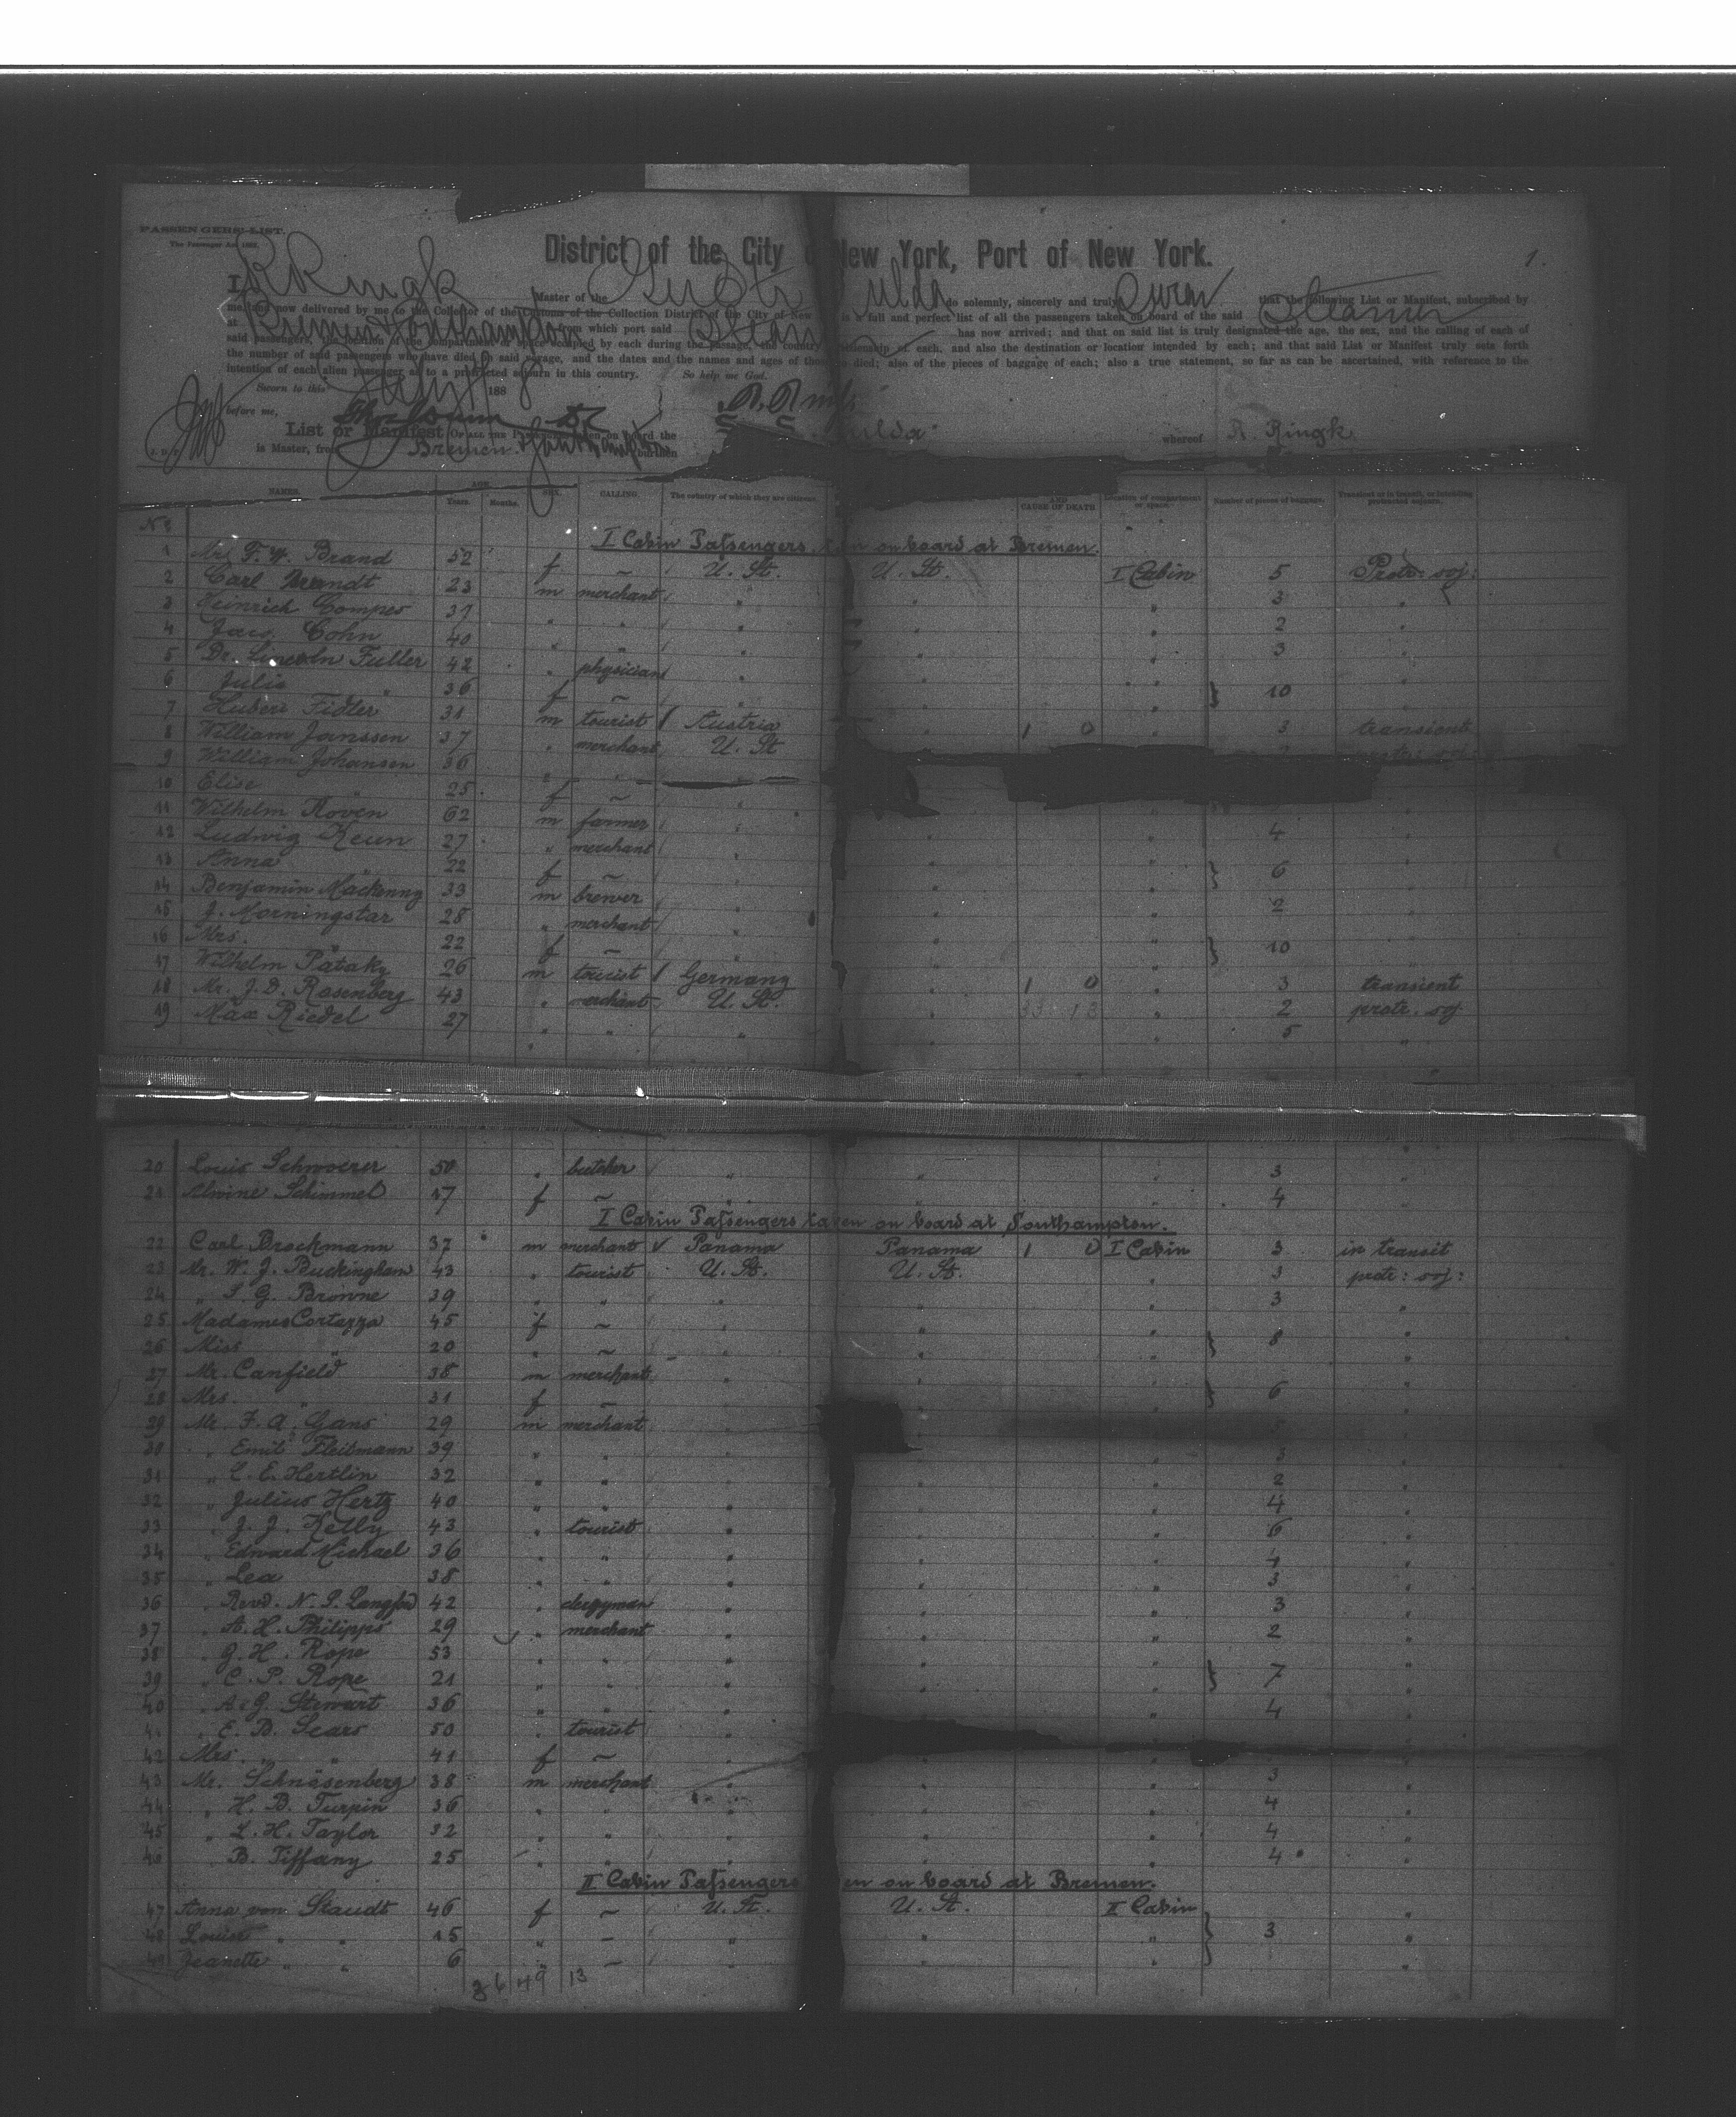 PASSENGERS' LIST.
District of the City New York, Port of New York.
1.
I, R Ringk Master of the do solemnly, sincerely and truly that the following List or Manifest, subscribed by
me, and now delivered by me to the Collector of the Customs of the Collection District of the City of New is a full and perfect list of all the passengers taken on board of the said Steamer
at Bremen from which port said has now arrived; and that on said list is truly designated the age, the sex, and the calling of each of
said passengers, the location of the compartment or space occupied by each during the passage, the country of citizenship of each, and also the destination or location intended by each; and that said List or Manifest truly sets forth
the number of said passengers who have died on said voyage, and the dates and the names and ages of those who died; also of the pieces of baggage of each; also a true statement, so far as can be ascertained, with reference to the
intention of each alien passenger as to a protracted sojourn in this country. So help me God.
Sworn to this 188
before me,
List or Manifest OF ALL THE taken on board the whereof R. Ringk
is Master, from Bremen burthen
NAMES. AGE. Years. Months. SEX. CALLING. The country of which they are citizens. AND CAUSE OF DEATH Location of compartment or space. Number of pieces of baggage. Transient or in transit, or intending protracted sojourn.
No
I Cabin Passengers on board at Bremen.
1 F. W. Brand 52 f ~ U. St. U. St. I Cabin 5 Protr. soj:
2 Carl Brandt 23 m merchant " " " 3 "
3 Heinrich Compes 37 " " " " 2 "
4 Jac. Cohn 40 " " " " 3 "
5 Dr. Lincoln Fuller 42 " physician " "
6 Julie " 36 f ~ " " } 10 "
7 Hubert Fidler 31 m tourist Austria 1 0 " 3 transient
8 William Janssen 37 " merchant U. St
9 William Johansen 36 " "
10 Elise " 25 f ~ "
11 Wilhelm Hoven 62 m farmer " " " 4 "
12 Ludwig Keun 27 " merchant " " "
13 Anna " 22 f ~ " " } 6 "
14 Benjamin Mackenny 33 m brewer " " 2 "
15 J. Morningstar 28 " merchant " " "
16 Mrs. " 22 f ~ " " } 10 "
17 Wilhelm Pataky 26 m tourist Germany 1 0 " 3 transient
18 Mr. J. D. Rosenberg 43 " merchant U. St. " 2 protr. soj
19 Max Riedel 27 " " " " 5 "
20 Louis Schwoerer 50 " butcher " " " 3 "
21 Alwine Schimmel 17 f ~ " " " 4 "
I Cabin Passengers taken on board at Southampton.
22 Carl Brockmann 37 m merchant Panama Panama 1 0 I Cabin 3 in transit
23 Mr. W. J. Buckingham 43 " tourist U. St. U. St. " 3 protr: soj:
24 " S. G. Browne 39 " " " " " 3 "
25 Madames Cortazza 45 f ~ " "
26 Miss " 20 " ~ " " " } 8 "
27 Mr. Canfield 38 m merchant " " "
28 Mrs. " 31 f ~ " " } 6 "
29 Mr. F. A. Gans 29 m merchant " " "
30 " Emil Fleismann 39 " " " " " 3 "
31 " C. E. Hertlin 32 " " " " " 2 "
32 " Julius Hertz 40 " " " " " 4 "
33 " J. J. Kelly 43 " tourist " " " 6 "
34 " Edward Michael 36 " " " " " 4 "
35 " Lea 38 " " " " " 3 "
36 " Revd. N. P. Langford 42 " clergyman " " " 3 "
37 " A. H. Philipps 29 " merchant " " " 2 "
38 " G. H. Rope 53 " " " " "
39 " C. P. Rope 21 " " " " " } 7 "
40 " A. G. Stewart 36 " " " " " 4 "
41 " E. B. Sears 50 " tourist "
42 Mrs. " " 41 f ~ "
43 Mr. Schnasenberg 38 m merchant " " " 3 "
44 " H. B. Turpin 36 " " " " " 4 "
45 " L. H. Taylor 32 " " " " " 4 "
46 " B. Tiffany 25 " " " " " 4 "
II Cabin Passengers on board at Bremen.
47 Anna von Staudt 46 f ~ U. St. U. St. II Cabin "
48 Louise " " 15 " ~ " " " } 3 "
49 Jeanette " " 6 " ~ " " " "
36 49 13